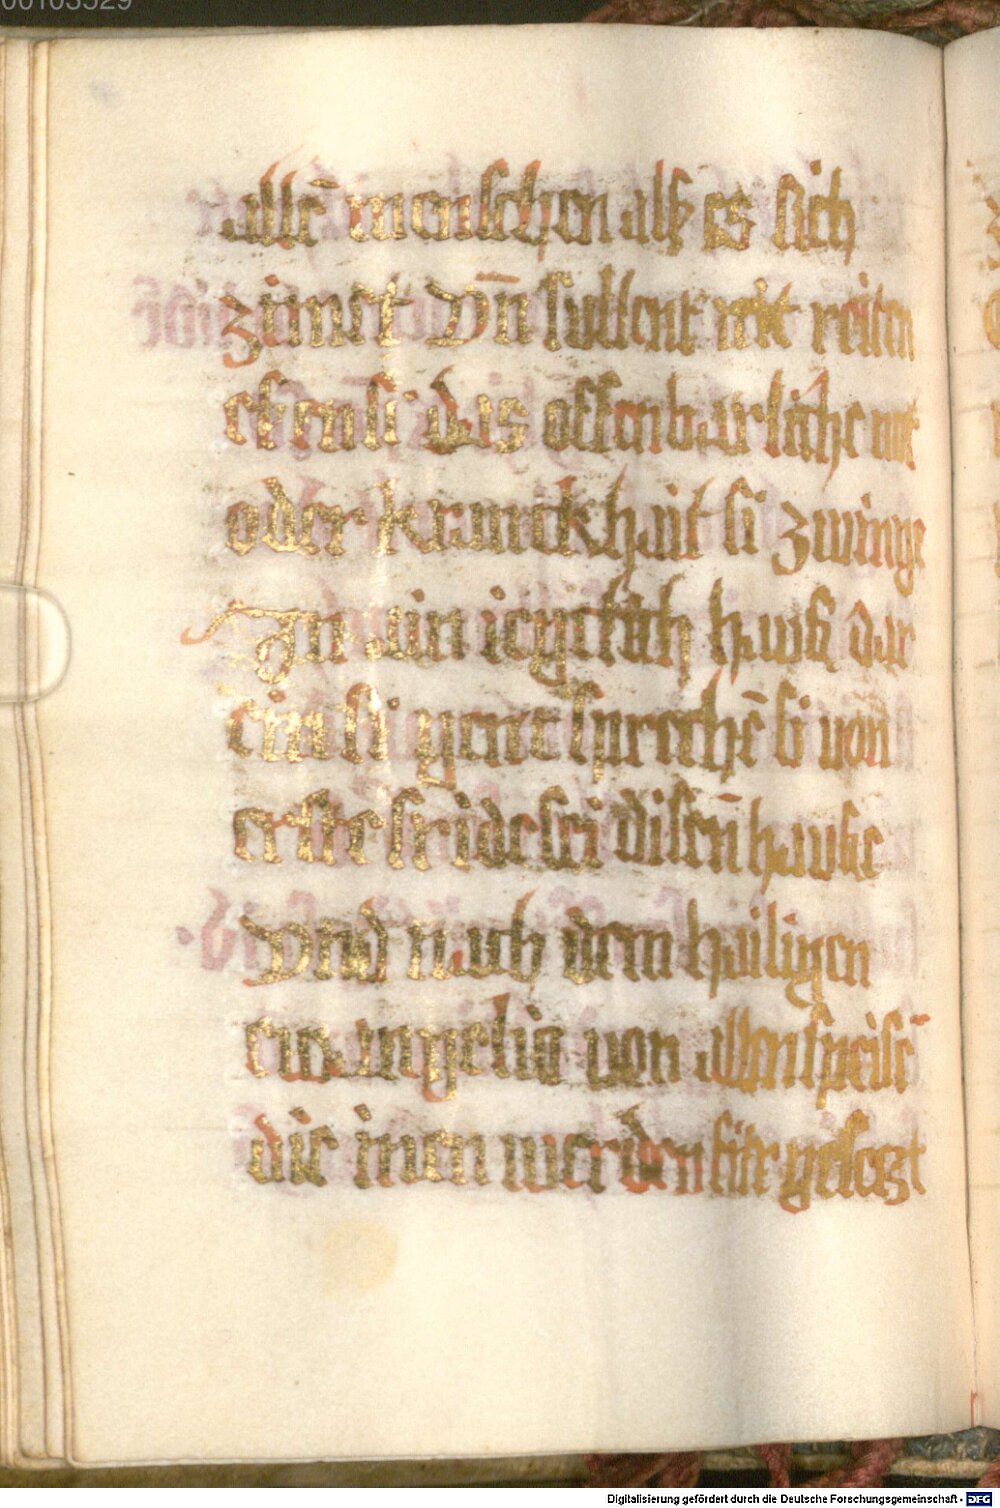 00103529
allē menschen als es sich
zimet Vn̄ sullent nit reiten
es ensi das offenbarliche not
oder kranckhait si zwinge
In ain iegclich haus dar
ein si gent sprechē si von
erste fride sei disen̄ hause
Vnd nach dem hailigen
ewangelio von allen speisē
die inen werden für gesetzt
Digitalisierung gefördert durch die Deutsche Forschungsgemeinschaft - DFG